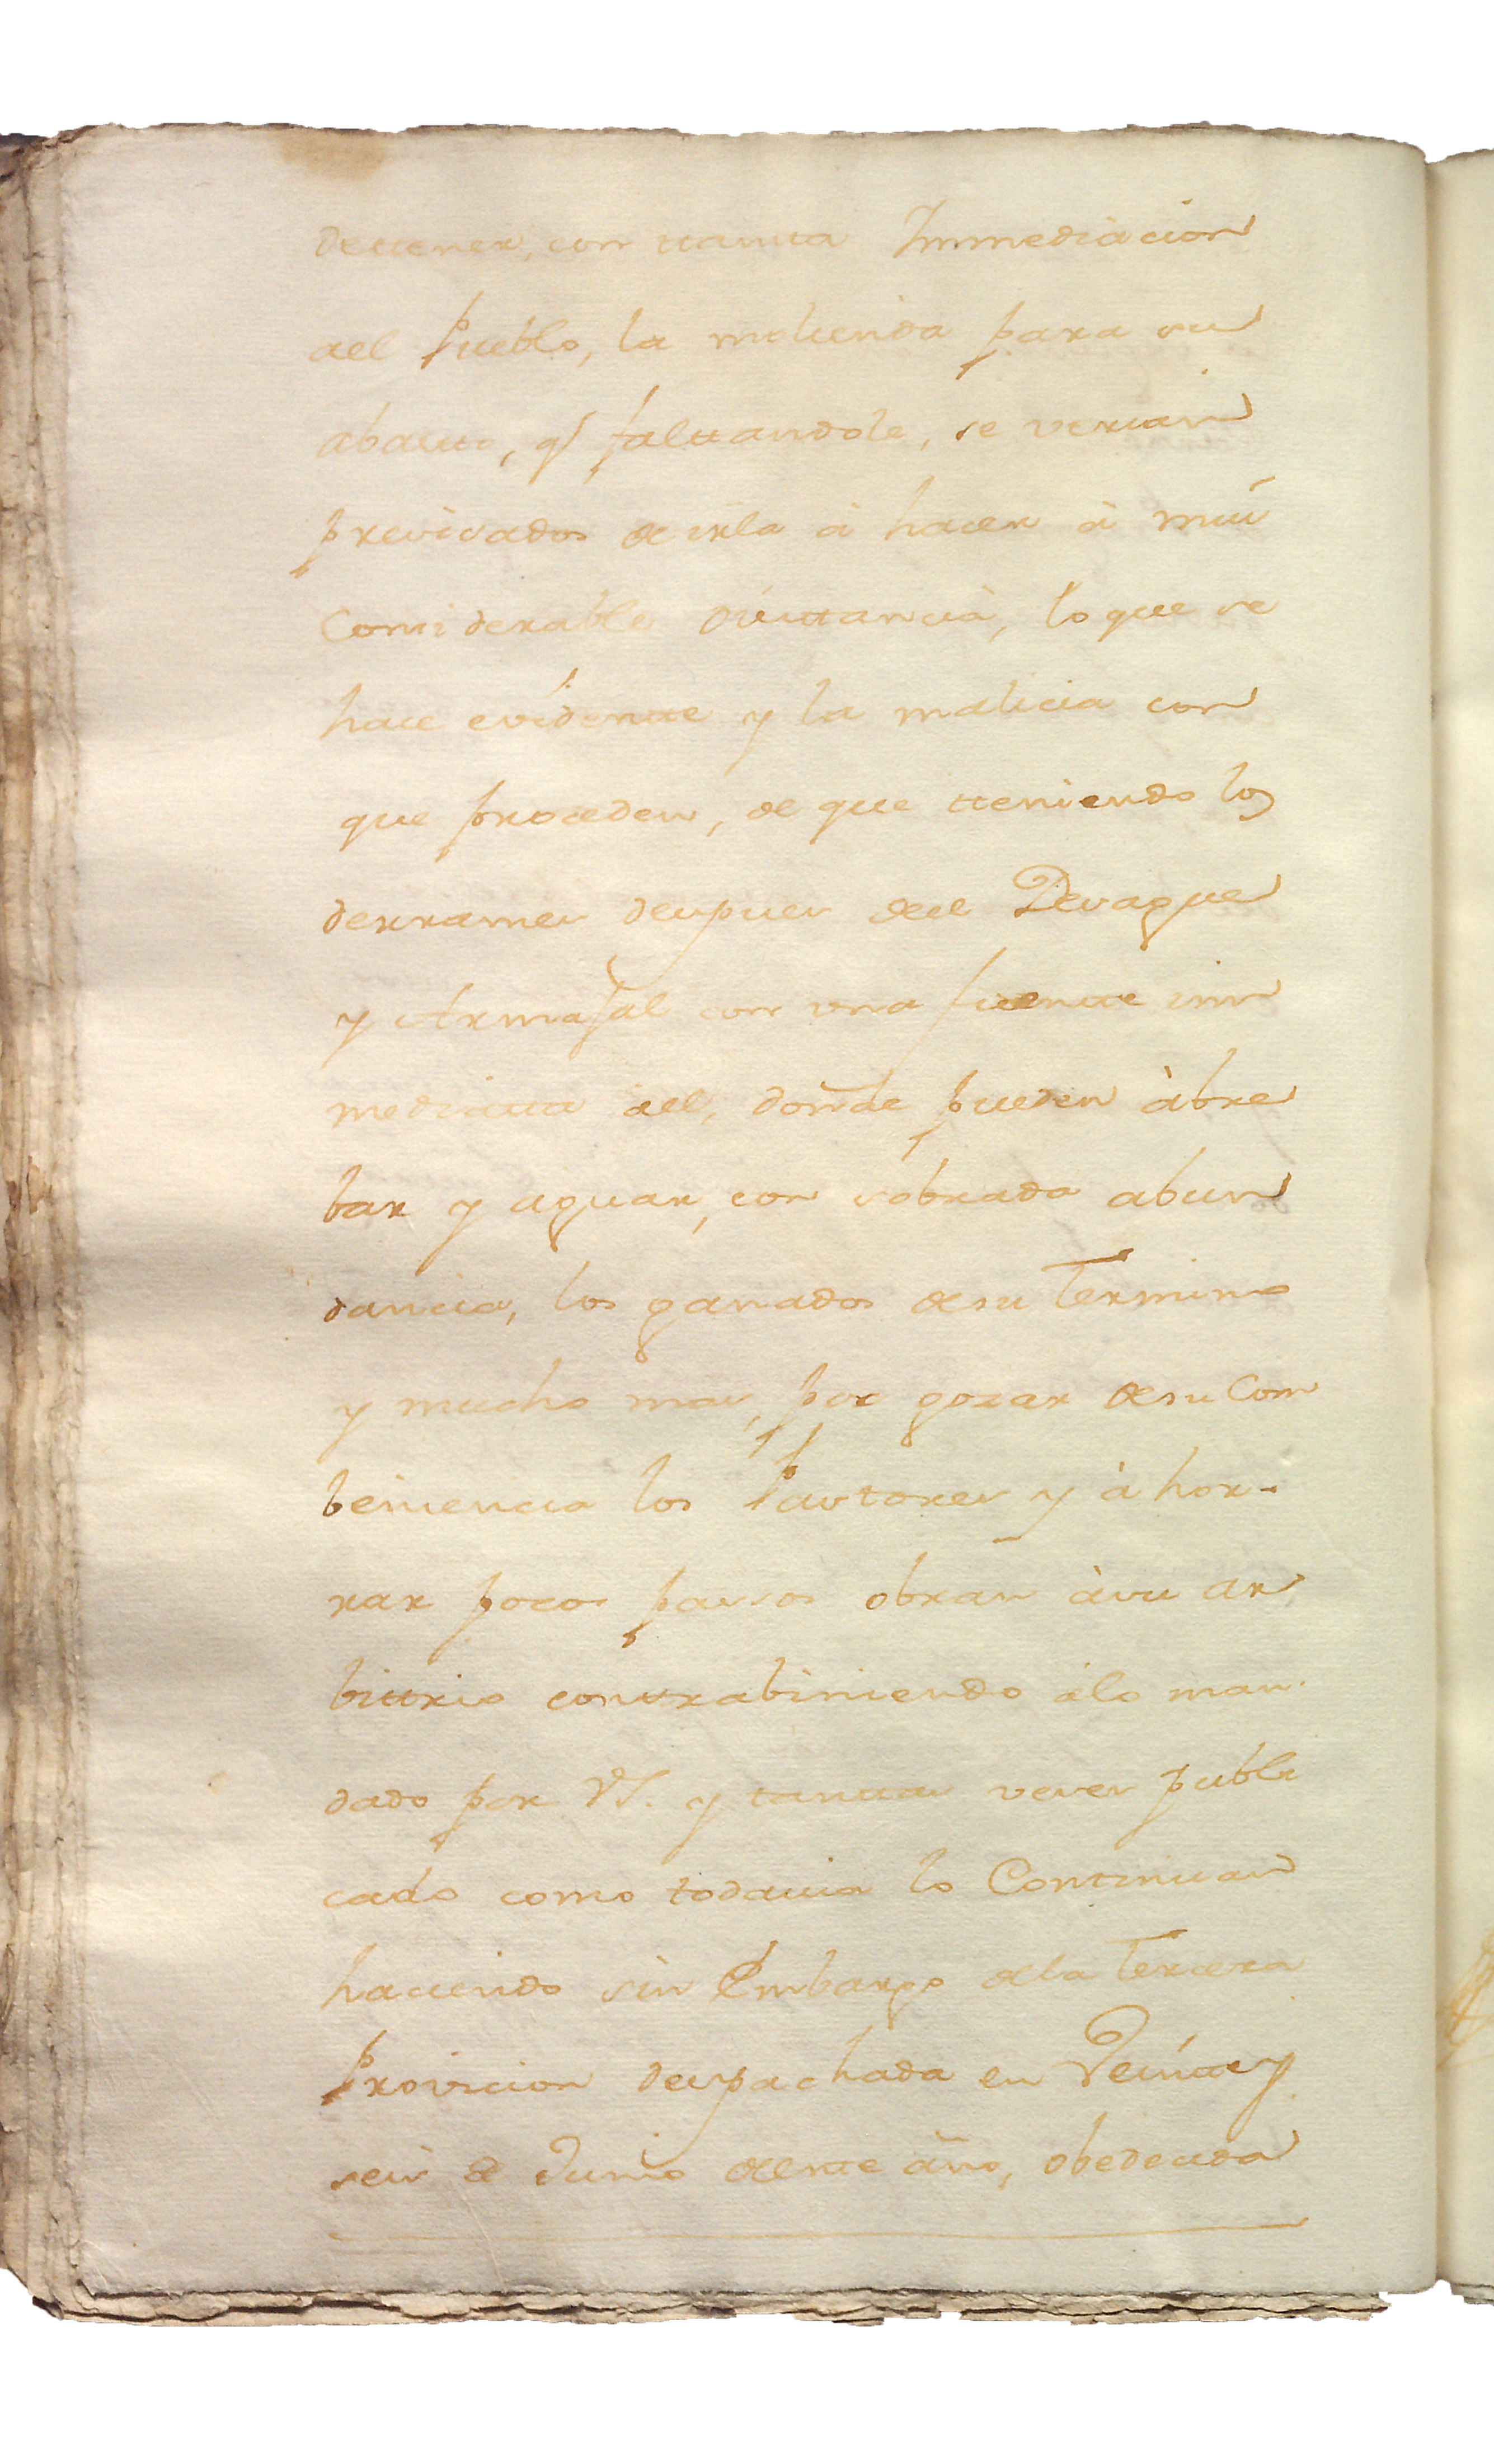 dettener, con ttantta Immediacion
ael Pueblo, la molienda para su
abastto, q̃ falttandole, se verian
previsados de irla â hacer â mui
Considerable disttancia, lo que se
hace evidentte y la malicia con
que proceden, de que tteniendo los
derrames despues del Desague
y Armajal con una fuentte im
mediatta âel, donde pueden âbre
bar y aguar, con sobrada abun
dancia, los ganados de su Termino
y mucho mas, por gozar de su Com
beniencia los Pastores y â hor-
rar pocos passos obran âsu ar
bittrio conttrabiniendo âlo man-
dado por VS. y tanttas veses publi
cado como todavia lo Continuan
haciendo sin Embargo dela Tercera
Provicion despachada en Veintte y
seis de Junio destte año, obedecida